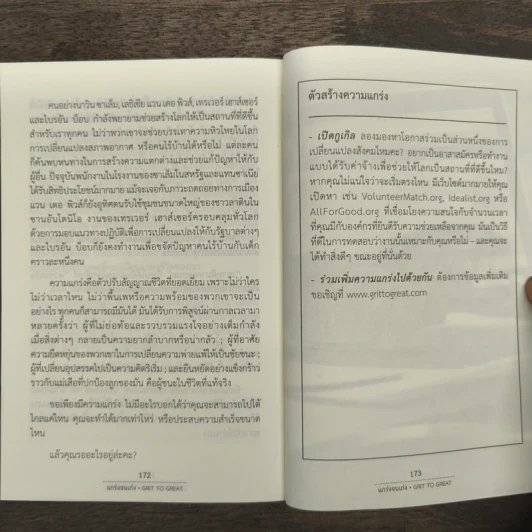 คนอย่างนาวิน ซาเล็ม, เลธิเชีย แวน เดอ พิวส์, เทรเวอร์ เฮาส์เซอร์
และไบรอัน บ็อบ กำลังพยายามช่วยสร้างโลกให้เป็นสถานที่ที่ดีขึ้น
สำหรับเราทุกคน ไม่ว่าพวกเขาจะช่วยบรรเทาความหิวโหยในโลก
การเปลี่ยนแปลงสภาพอากาศ หรือคนไร้บ้านได้หรือไม่ แต่ละคน
ก็ค้นพบหนทางในการสร้างความแตกต่างและช่วยแก้ปัญหาให้กับ
ผู้อื่น ปัจจุบันพนักงานในโรงงานของซาเล็มในสหรัฐและแทนซาเนีย
ได้รับสิทธิประโยชน์มากมาย แม้จะเจอกับภาวะถดถอยทางการเมือง
แวน เดอ พิวส์ก็ยังอุทิศตนรับใช้ชุมชนขนาดใหญ่ของชาวลาตินใน
ซานอันโตนิโอ งานของเทรเวอร์ เฮาส์เซอร์ครอบคลุมทั่วโลก
ด้วยการมอบแนวทางปฏิบัติเพื่อการเปลี่ยนแปลงให้กับรัฐบาลต่างๆ
และไบรอัน บ็อบก็ยังคงทำงานเพื่อขจัดปัญหาคนไร้บ้านกับเด็ก
คราวละหนึ่งคน
ความแกร่งคือตัวปรับสัญญาณชีวิตที่ยอดเยี่ยม เพราะไม่ว่าใคร
ไม่ว่าเวลาไหน ไม่ว่าพื้นเพหรือความพร้อมของพวกเขาจะเป็น
อย่างไร ทุกคนก็สามารถมีมันได้ มันได้รับการพิสูจน์ผ่านกาลเวลามา
หลายครั้งว่า ผู้ที่ไม่ย่อท้อและรวบรวมแรงใจอย่างเต็มกำลัง
เมื่อสิ่งต่างๆ กลายเป็นความยากลำบากหรือน่ากลัว ; ผู้ที่อาศัย
ความยึดหยุ่นของพวกเขาในการเปลี่ยนความพ่ายแพ้ให้เป็นชัยชนะ ;
ผู้ที่เปลี่ยนอุปสรรคไปเป็นความคิดริเริ่ม ; และยืนหยัดอย่างแข็งกร้าว
ราวกับแม่เสือที่ปกป้องลูกของมัน คือผู้ชนะในชีวิตที่แท้จริง
ขอเพียงมีความแกร่ง ไม่มีอะไรบอกได้ว่าคุณจะสามารถไปได้
ไกลแค่ไหน คุณจะทำได้มากเท่าไหร่ หรือประสบความสำเร็จขนาด
ไหน
แล้วคุณรออะไรอยู่ล่ะคะ?
172
แกร่งจนเก่ง • GRIT TO GREAT
ตัวสร้างความแกร่ง
- เปิดกูเกิล ลองมองหาโอกาสร่วมเป็นส่วนหนึ่งของการ
เปลี่ยนแปลงสังคมไหมคะ? อยากเป็นอาสาสมัครหรือทำงาน
แบบได้รับค่าจ้างเพื่อช่วยให้โลกเป็นสถานที่ที่ดีขึ้นไหม?
หากคุณไม่แน่ใจว่าจะเริ่มตรงไหน มีเว็บไซต์มากมายให้คุณ
เปิดหา เช่น VolunteerMatch.org, Idealist.org หรือ
AllForGood.org ที่เชื่อมโยงความสนใจกับจำนวนเวลา
ที่คุณมีกับองค์กรที่ยินดีรับความช่วยเหลือจากคุณ มันเป็นวิธี
ที่ดีในการทดสอบว่างานนั้นเหมาะกับคุณหรือไม่ – และคุณจะ
ได้ทำสิ่งดีๆ ขณะอยู่ที่นั่นด้วย
- ร่วมเพิ่มความแกร่งไปด้วยกัน ต้องการข้อมูลเพิ่มเติม
ขอเชิญที่ www.grittogreat.com
173
แกร่งจนเก่ง • GRIT TO GREAT